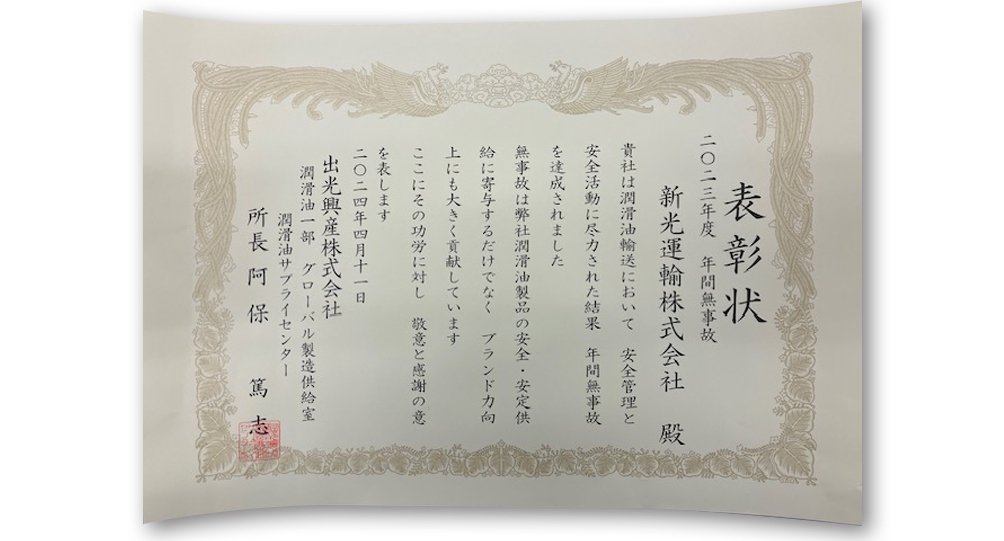 表彰状
二〇二三年度 年間無事故
新光運輸株式会社 殿
貴社は潤滑油輸送において 安全管理と
安全活動に尽力された結果 年間無事故
を達成されました
無事故は弊社潤滑油製品の安全・安定供
給に寄与するだけでなく ブランド力向
上にも大きく貢献しています
ここにその功労に対し 敬意と感謝の意
を表します
二〇二四年四月十一日
出光興産株式会社
潤滑油一部 グローバル製造供給室
潤滑油サプライセンター
所長 阿保 篤志